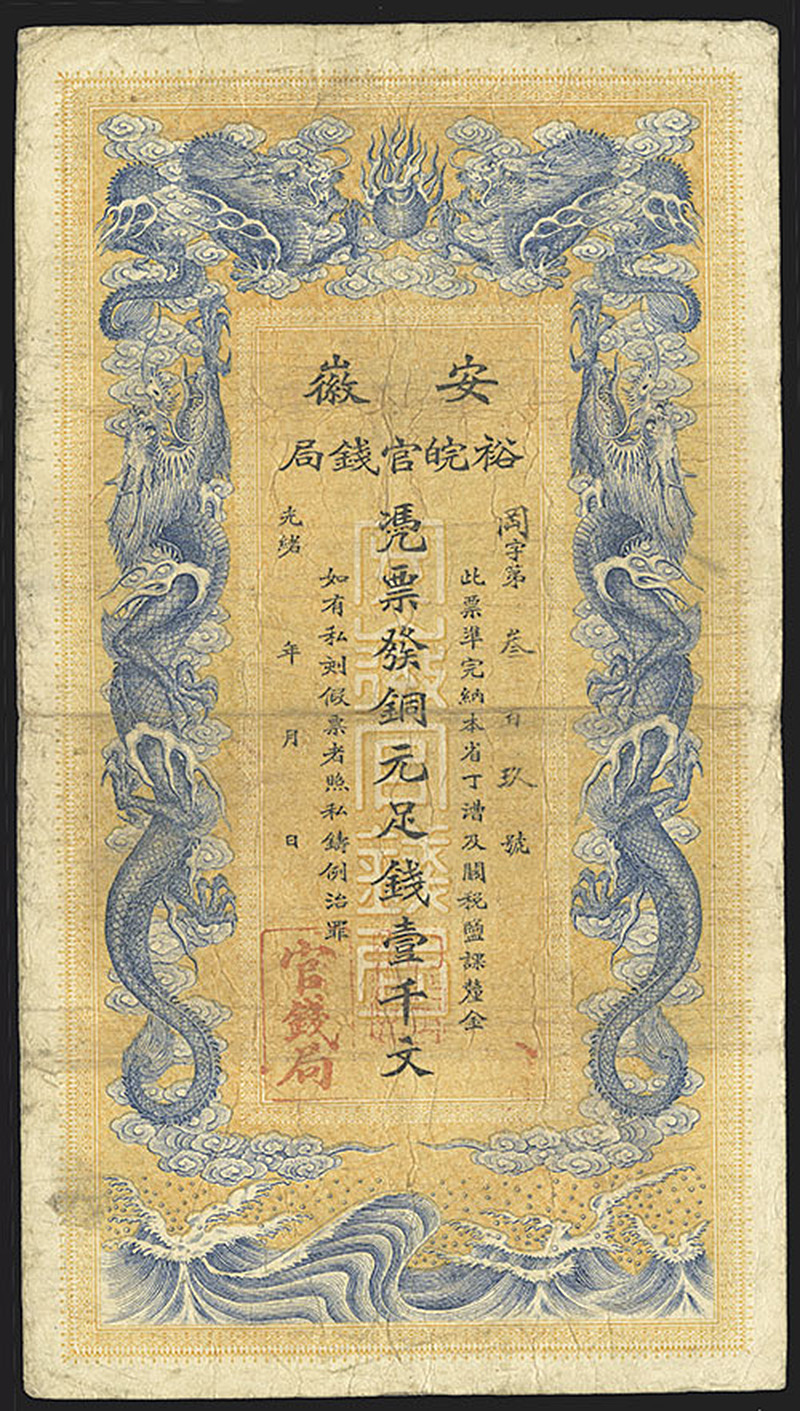 安徽
裕皖官錢局
岡字第叁百玖號
此票準完納本省丁漕及關稅鹽課釐金
憑票發銅元足錢壹千文
如有私刻假票者照私鑄例治罪
光緒 年 月 日
官錢局